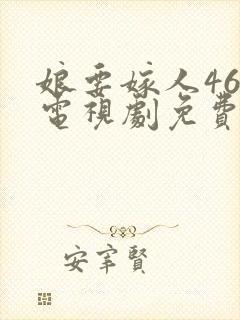 娘要嫁人46
電視劇免費
安宰賢